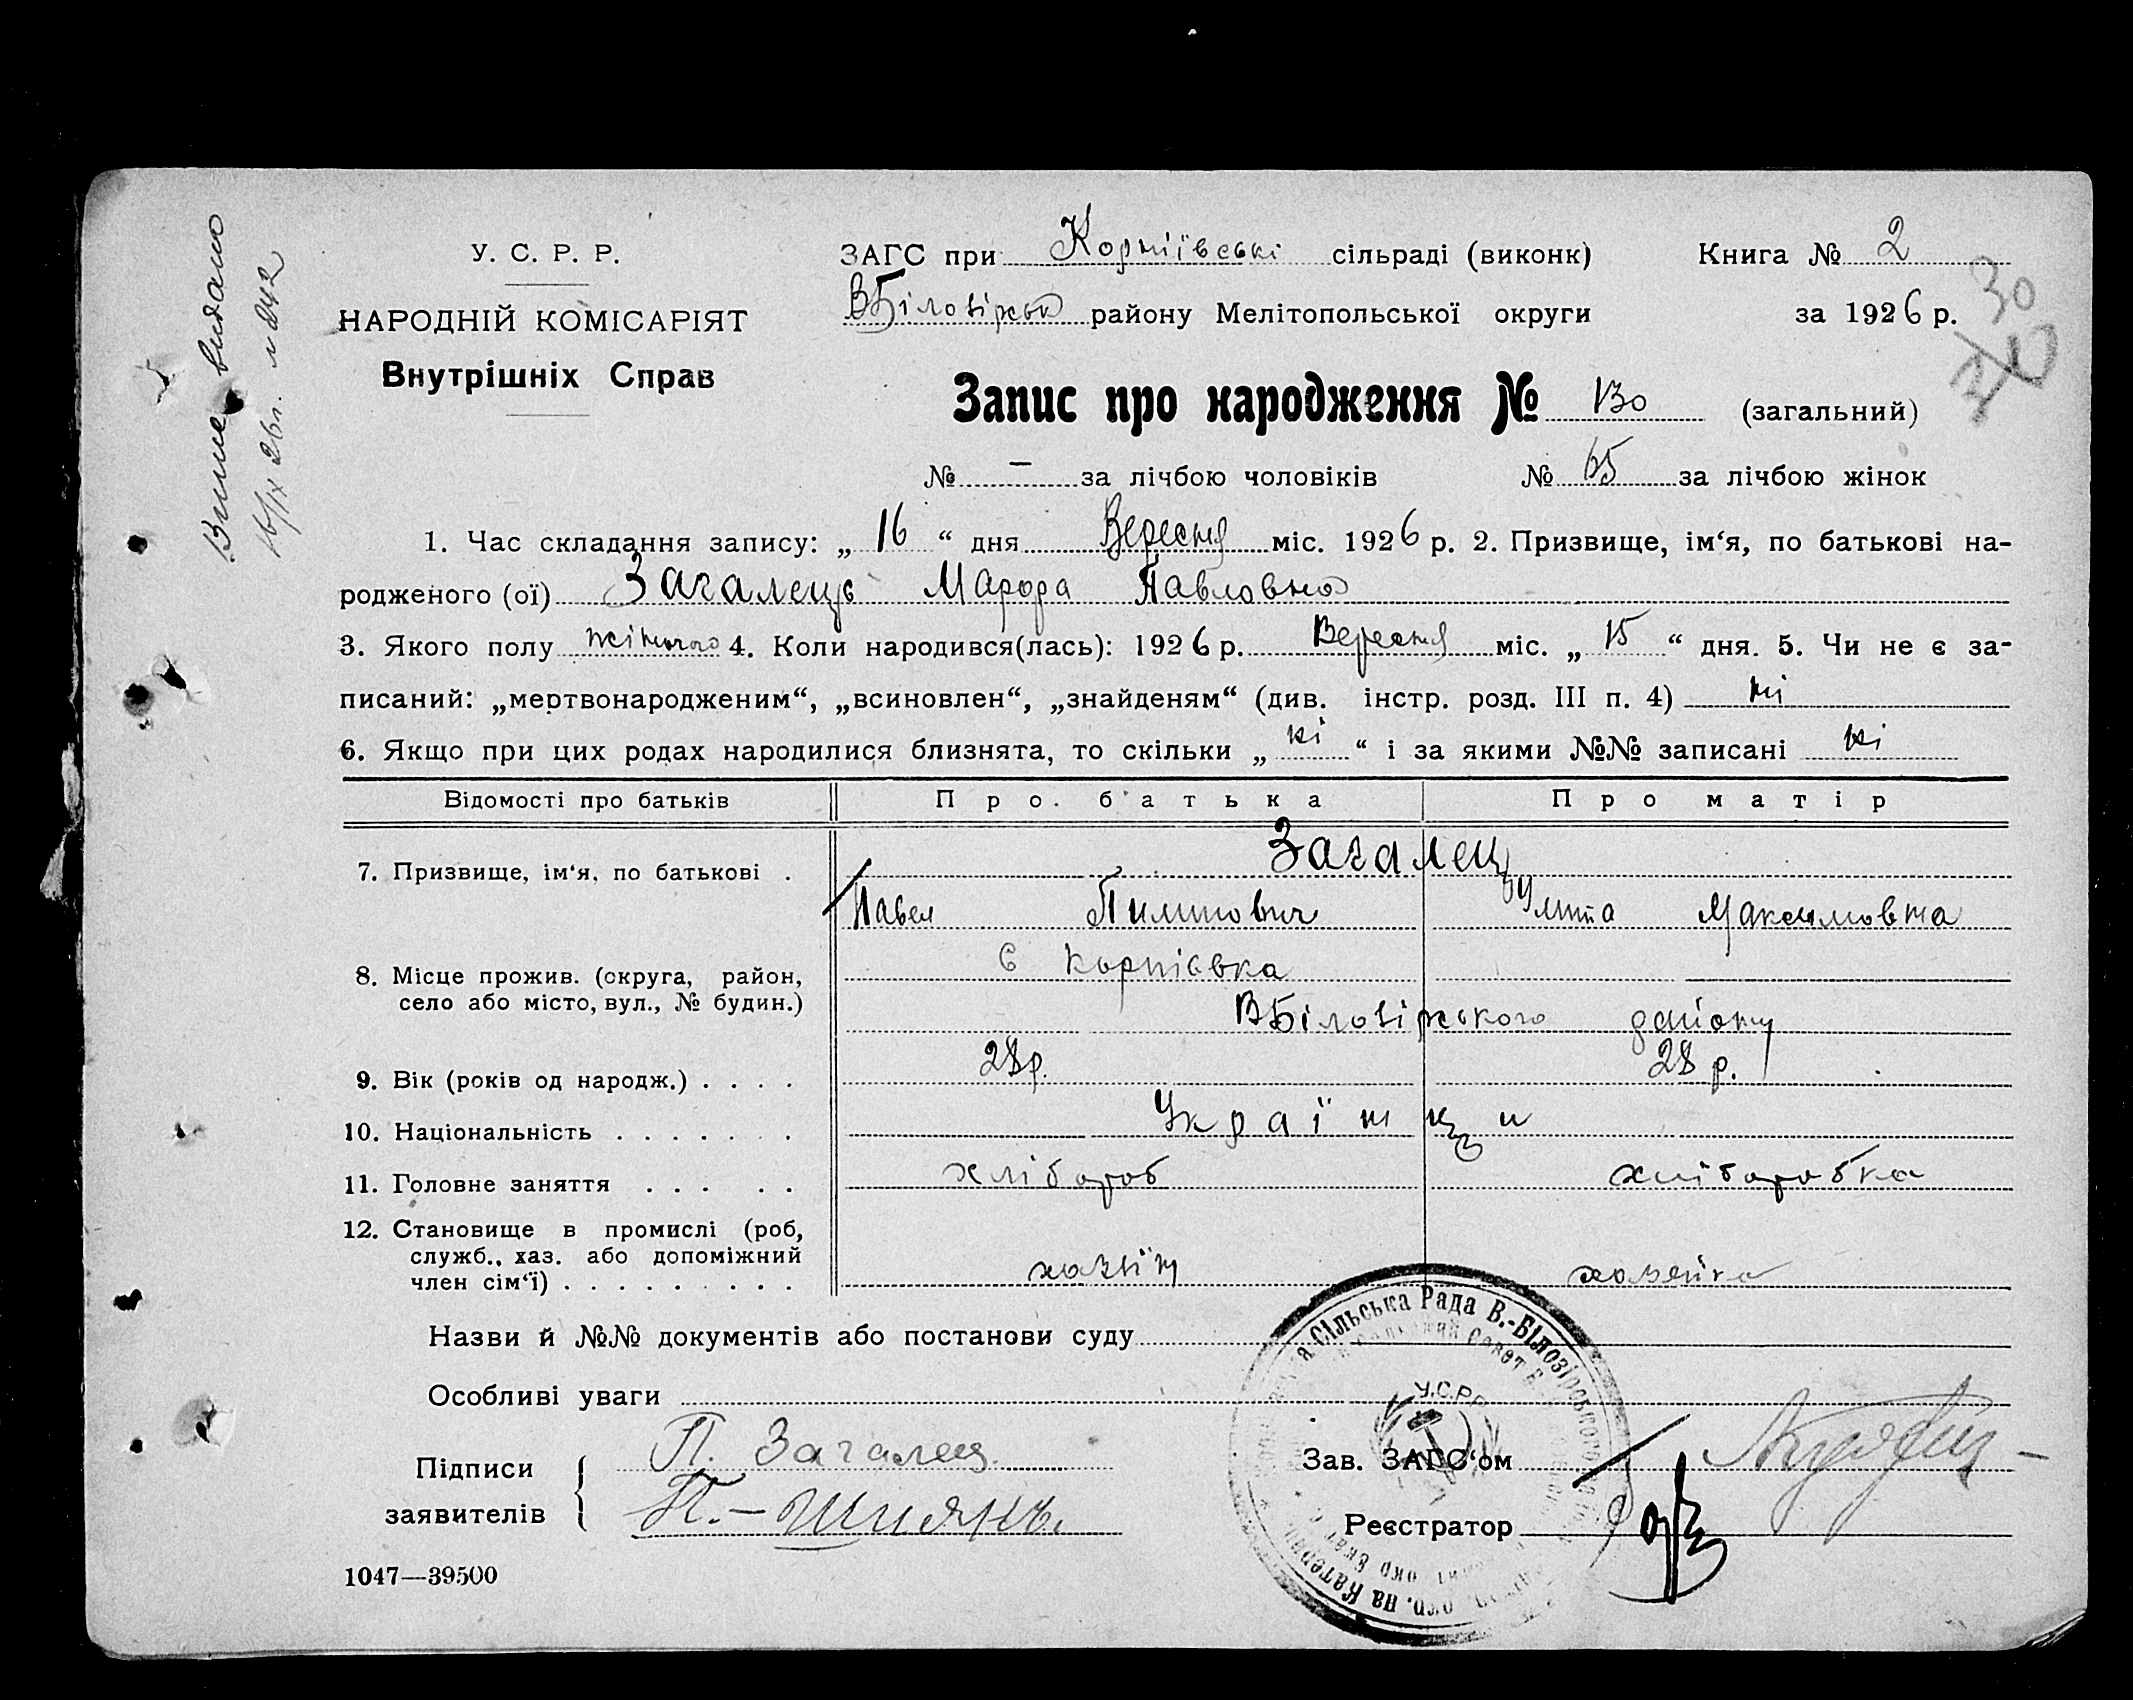 У. С. Р. Р.
НАРОДНІЙ КОМІСАРІЯТ
Внутрішніх Справ
ЗАГС при Корніївські сільраді (виконк) Книга № 2
ВБіловірськ району Мелітопольської округи за 1926 р.
30
Запис про народження № 130 (загальний)
№ — за лічбою чоловіків № 65 за лічбою жінок
видано
1. Час складання запису: „ 16 “ дня Вересня міс. 1926 р. 2. Призвище, ім‘я, по батькові на-
родженого (ої) Загалець Марфа Павловна
3. Якого полу жіночого 4. Коли народився(лась): 1926 р. Вересня міс. „ 15 “ дня. 5. Чи не є за-
писаний: „мертвонародженим“, „всиновлен“, „знайденям“ (див. інстр. розд. III п. 4) ні
6. Якщо при цих родах народилися близнята, то скільки „ ні “ і за якими №№ записані ні
Відомості про батьків Про батька Про матір
7. Призвище, ім‘я, по батькові . Загалец
Павел Пимнович Улита Максимовна
8. Місце прожив. (округа, район, с Корнієвка
село або місто, вул., № будин.) ВБіловірського району
9. Вік (років од народж.) . . . . 28р. 28 р.
10. Національність . . . . . . . Українци
11. Головне заняття . . . . . хлібороб хліборобка
12. Становище в промислі (роб,
служб., хаз. або допоміжний
член сім‘ї) . . . . . . . . . хозяїн хозяйка
Назви й №№ документів або постанови суду
Особливі уваги
Підписи П. Загалец
заявителів П.—Шиянъ.
Зав. ЗАГС‘ом
Реєстратор
Сільська Рада В.-Білозірського
У.С.Р.Р.
1047—39500